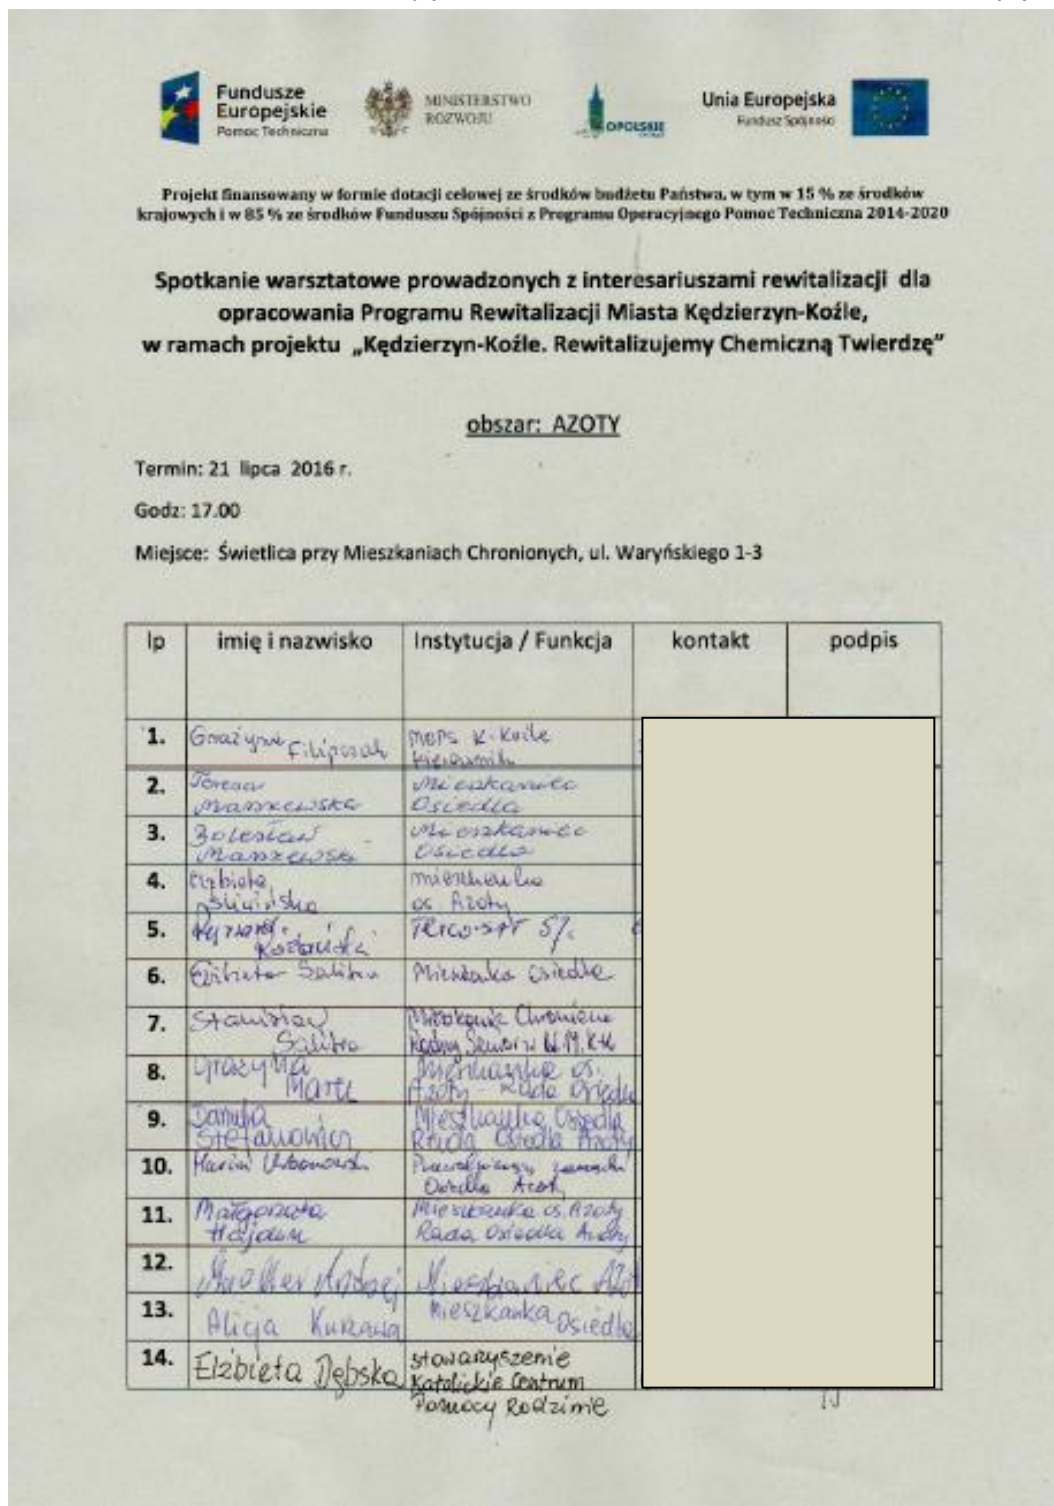 Fundusze
Europejskie
Pomoc Techniczna
MINISTERSTWO
ROZWOJU
OPOLSKIE
Unia Europejska
Fundusz Spójności
Projekt finansowany w formie dotacji celowej ze środków budżetu Państwa, w tym w 15 % ze środków
krajowych i w 85 % ze środków Funduszu Spójności z Programu Operacyjnego Pomoc Techniczna 2014-2020
Spotkanie warsztatowe prowadzonych z interesariuszami rewitalizacji dla
opracowania Programu Rewitalizacji Miasta Kędzierzyn-Koźle,
w ramach projektu „Kędzierzyn-Koźle. Rewitalizujemy Chemiczną Twierdzę”
obszar: AZOTY
Termin: 21 lipca 2016 r.
Godz: 17.00
Miejsce: Świetlica przy Mieszkaniach Chronionych, ul. Waryńskiego 1-3
lp imię i nazwisko Instytucja / Funkcja kontakt podpis
1. Grażyna Filipczak MOPS K-Koźle
kierownik
2. Teresa Mieszkaniec
Maszewska Osiedla
3. Bolesław Mieszkaniec
Maszewski Osiedla
4. Elżbieta mieszkanka
Śliwińska os. Azoty
5. Ryszard
6. Elżbieta Salitra Mieszkanka osiedla
7. Stanisław Mieszkanie Chronione
Salitra Radny Senior
8. Grażyna Mieszkanka os.
Azoty Rada Osiedla
9. Danuta Mieszkanka Osiedla
Stefanowicz Rada Osiedla Azoty
10. Marian
Osiedla Azoty
11. Małgorzata Mieszkanka os. Azoty
Hajduk Rada Osiedla Azoty
12. Andrzej Mieszkaniec
13. Alicja Mieszkanka Osiedla
14. Elżbieta Dębska stowarzyszenie
Katolickie Centrum
Pomocy Rodzinie